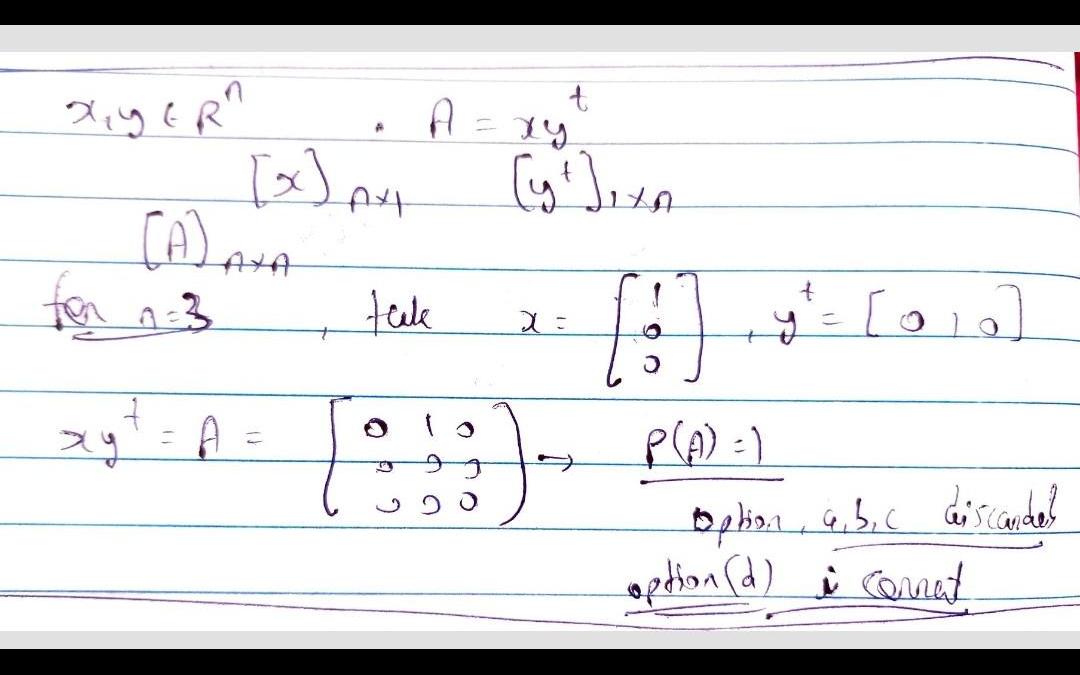 x, y ∈ Rⁿ . A = xyᵗ
[x]ₙₓ₁ [yᵗ]₁ₓₙ
[A]ₙₓₙ
for n=3 , take x = [1 0 0] , yᵗ = [0 1 0]
xyᵗ = A = [0 1 0
0 0 0
0 0 0] → P(A) = 1
option, a, b, c discarded
option (d) i correct